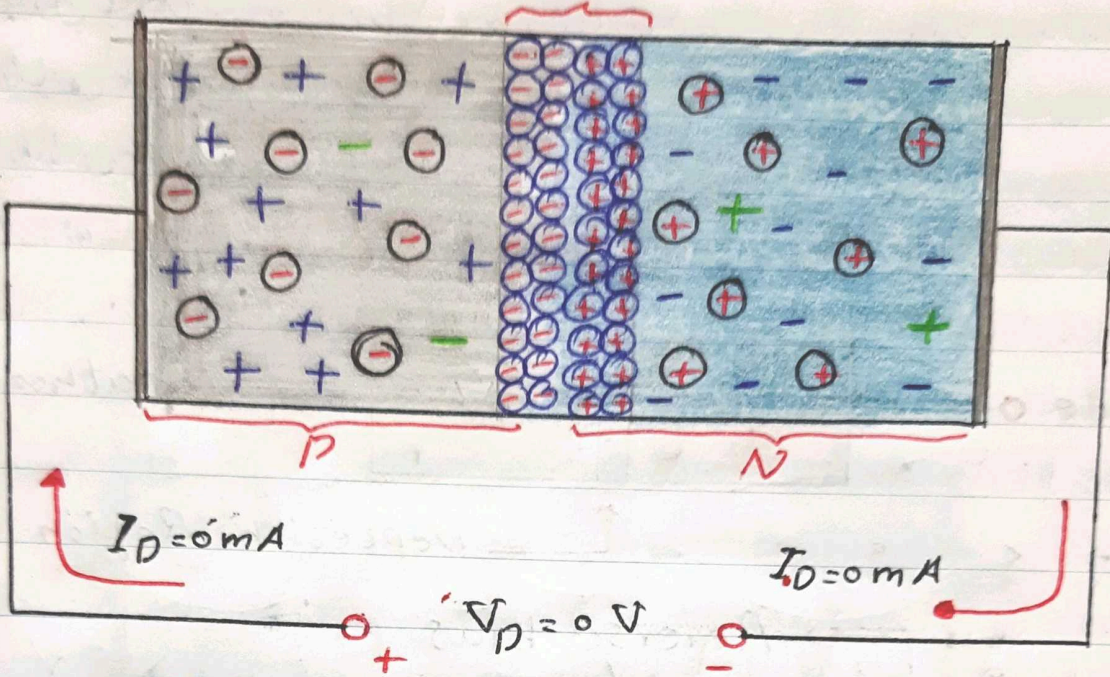 P
N
I_D = 0 mA
I_D = 0 mA
V_D = 0 V
+
-